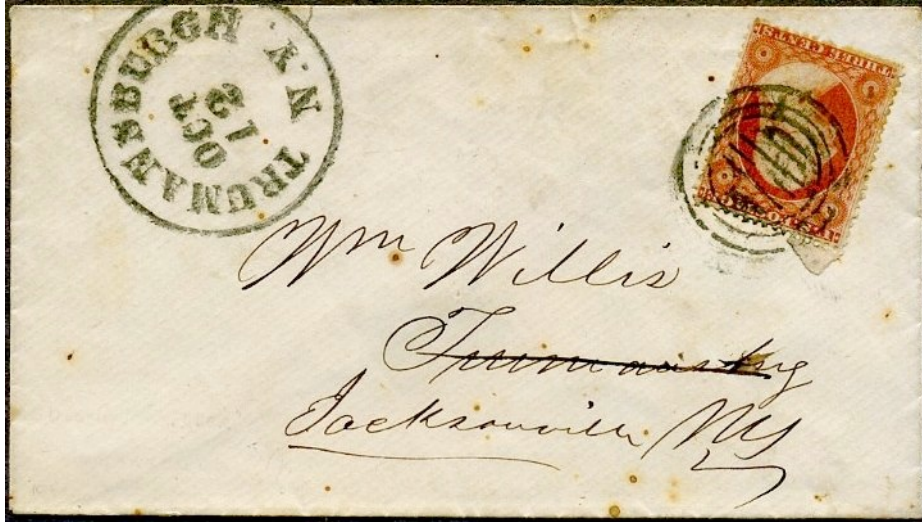 TRUMANSBURGH N.Y.
OCT
12
U.S. POSTAGE
THREE CENTS
Wm Willis
Trumansbug
Jacksonville NY